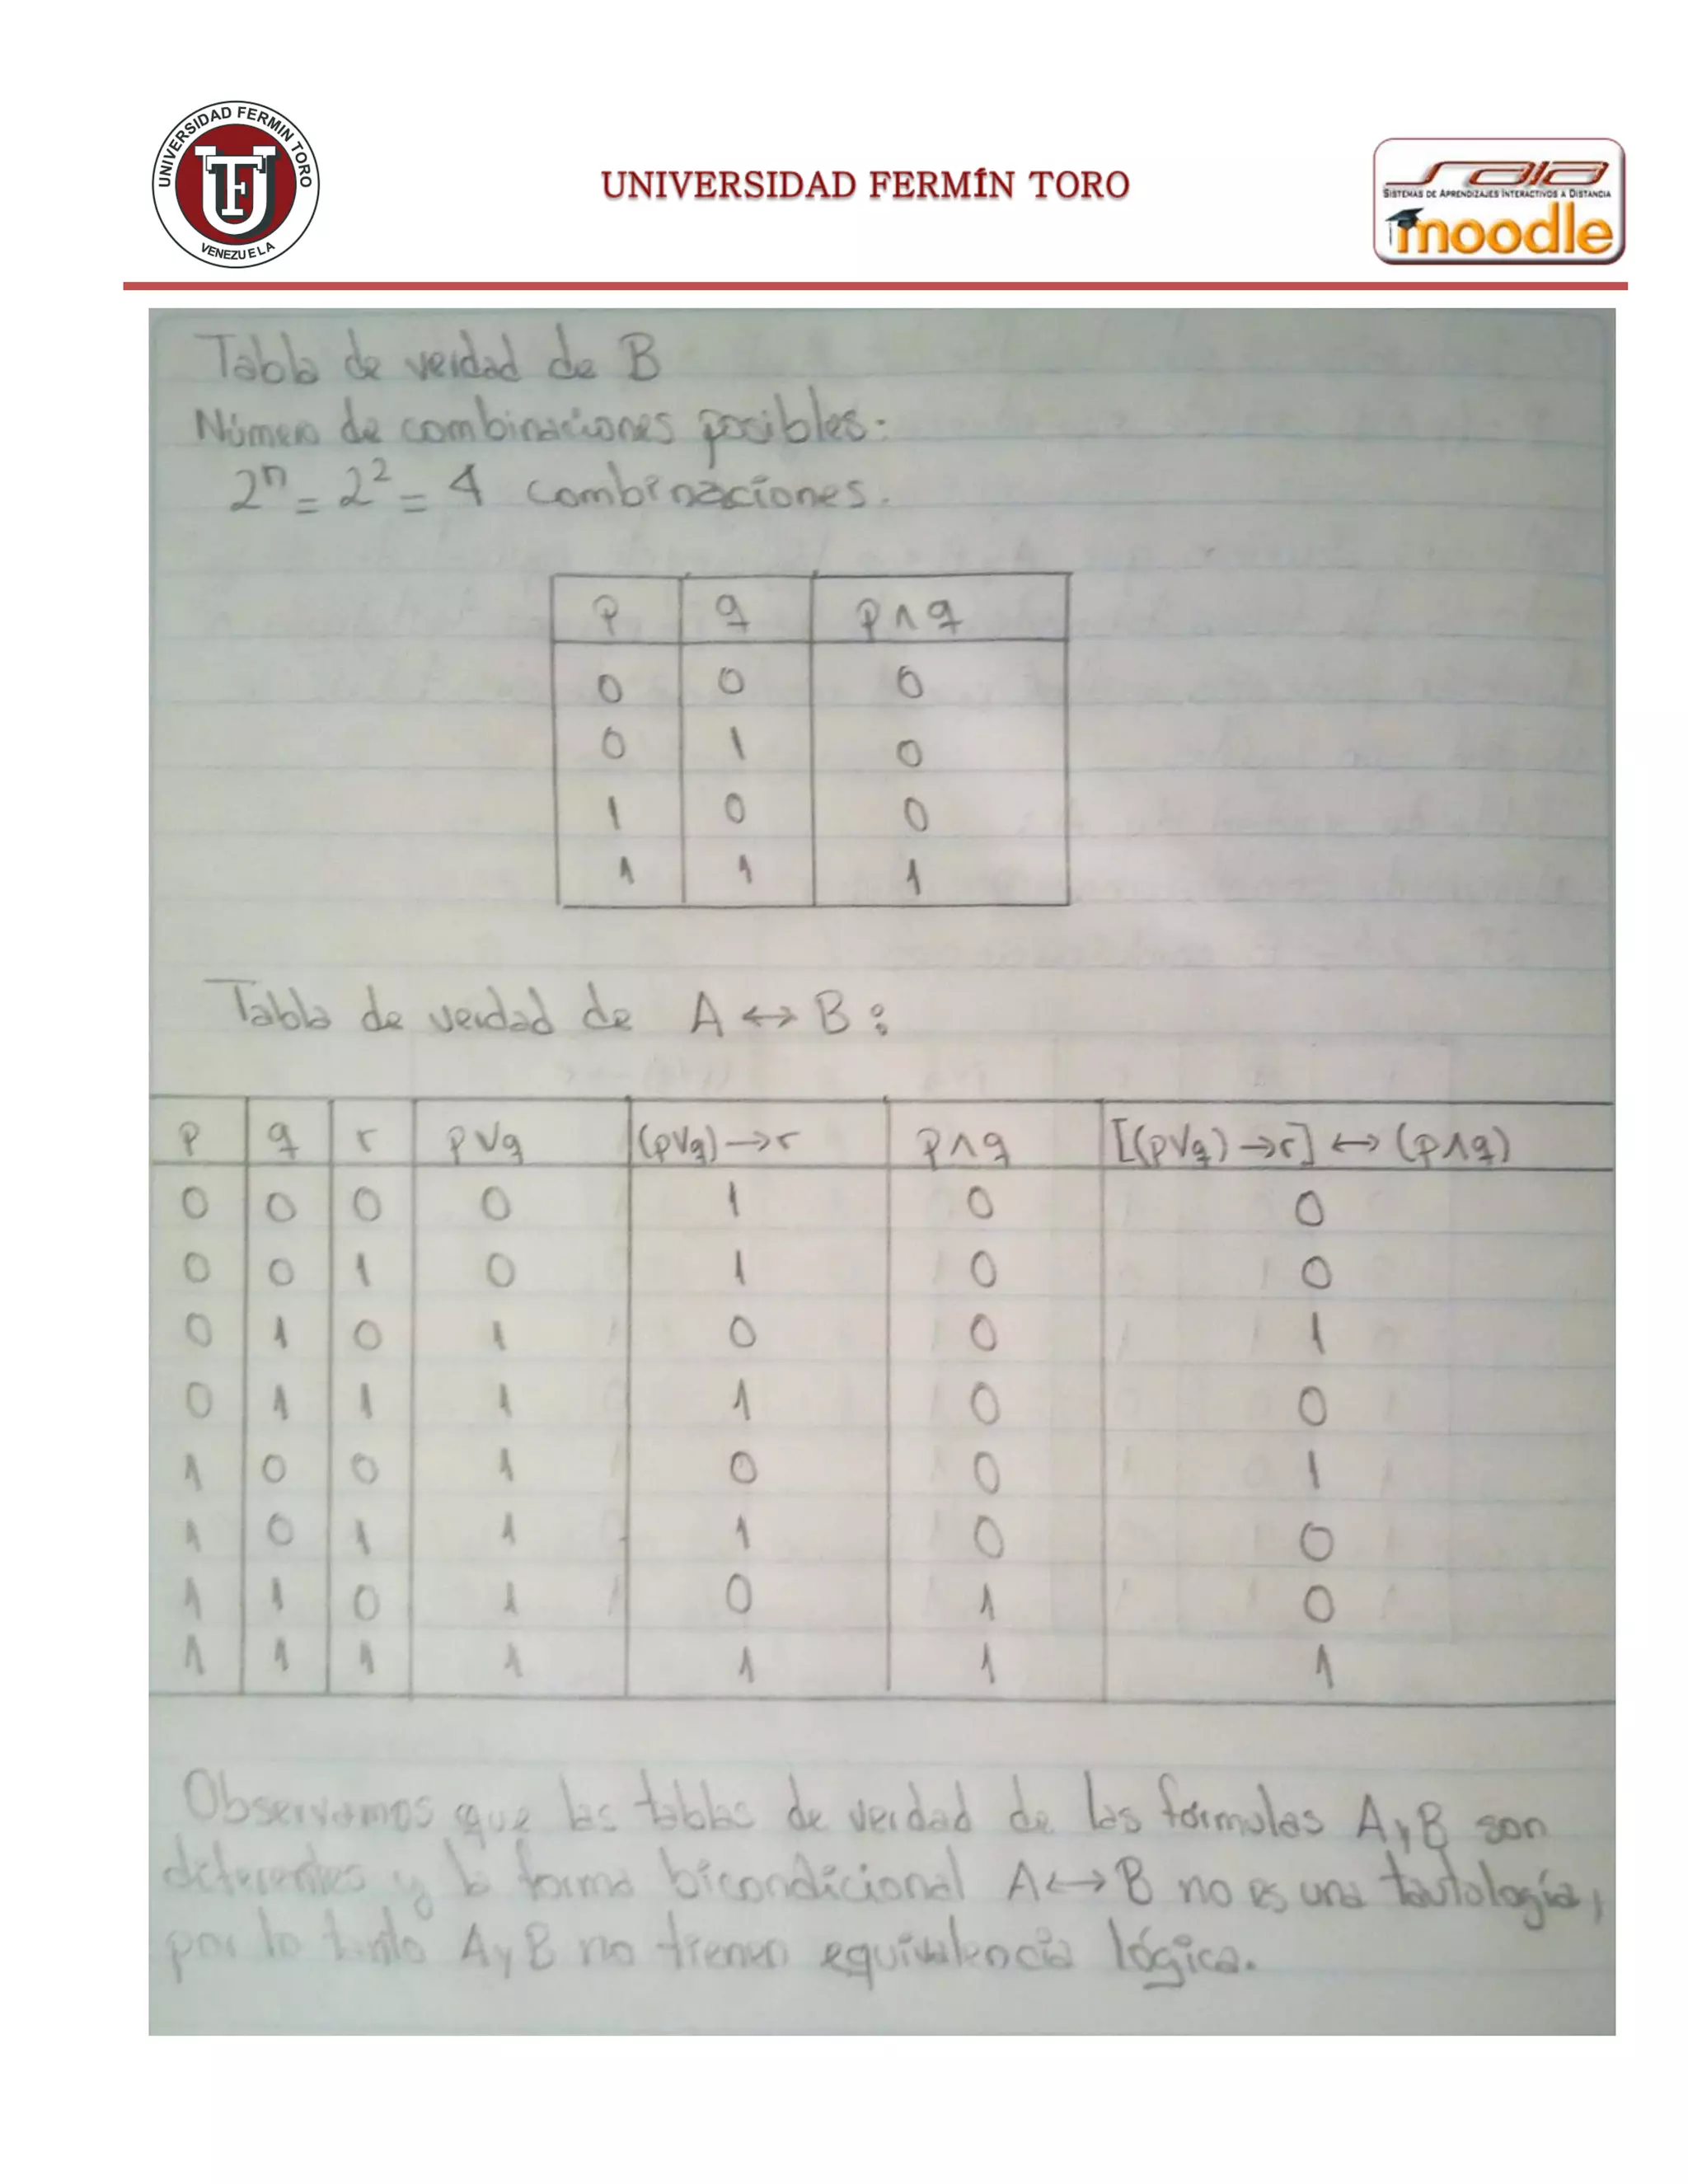 UNIVERSIDAD FERMIN TORO
VENEZUELA
UNIVERSIDAD FERMÍN TORO
saia
SISTEMAS DE APRENDIZAJES INTERACTIVOS A DISTANCIA
moodle
Tabla de verdad de B
Número de combinaciones posibles:
2ⁿ = 2² = 4 combinaciones.
p q p∧q
0 0 0
0 1 0
1 0 0
1 1 1
Tabla de verdad de A ↔ B:
p q r p∨q (p∨q)→r p∧q [(p∨q)→r]↔(p∧q)
0 0 0 0 1 0 0
0 0 1 0 1 0 0
0 1 0 1 0 0 1
0 1 1 1 1 0 0
1 0 0 1 0 0 1
1 0 1 1 1 0 0
1 1 0 1 0 1 0
1 1 1 1 1 1 1
Observamos que las tablas de verdad de las fórmulas A y B son
diferentes y la forma bicondicional A↔B no es una tautología,
por lo tanto A y B no tienen equivalencia lógica.